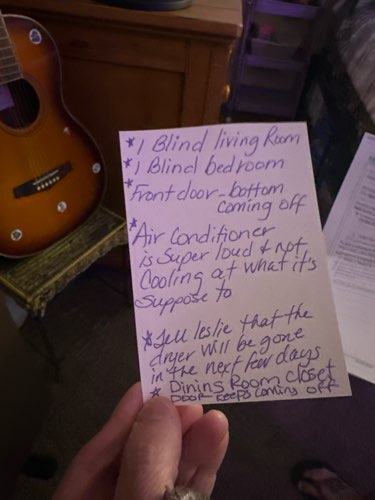 * 1 Blind living Room
* 1 Blind bedroom
* Front door - bottom
coming off
* Air Conditioner
is Super loud & not
Cooling at what it's
Suppose to
* Tell leslie that the
dryer will be gone
in the next few days
* Dining Room Closet
DOOR keeps coming off